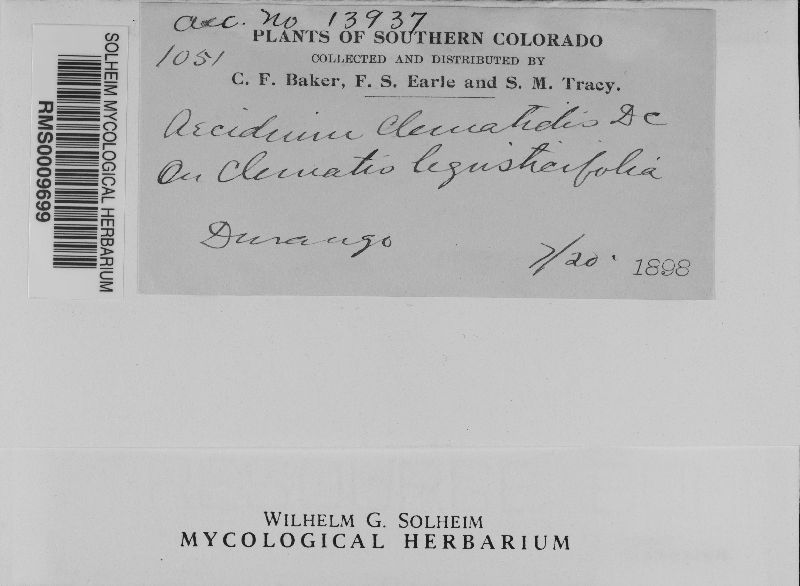 acc. no 13937
PLANTS OF SOUTHERN COLORADO
1051
COLLECTED AND DISTRIBUTED BY
C. F. Baker, F. S. Earle and S. M. Tracy.
Aecidium Clematidis DC
On Clematis ligusticifolia
Durango
7/20 1898
SOLHEIM MYCOLOGICAL HERBARIUM
RMS0009699
WILHELM G. SOLHEIM
MYCOLOGICAL HERBARIUM